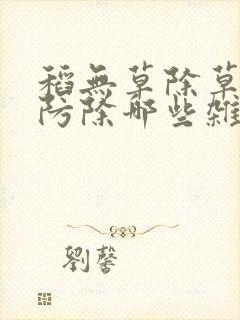 稻無草除草
防除那些雜
劉馨